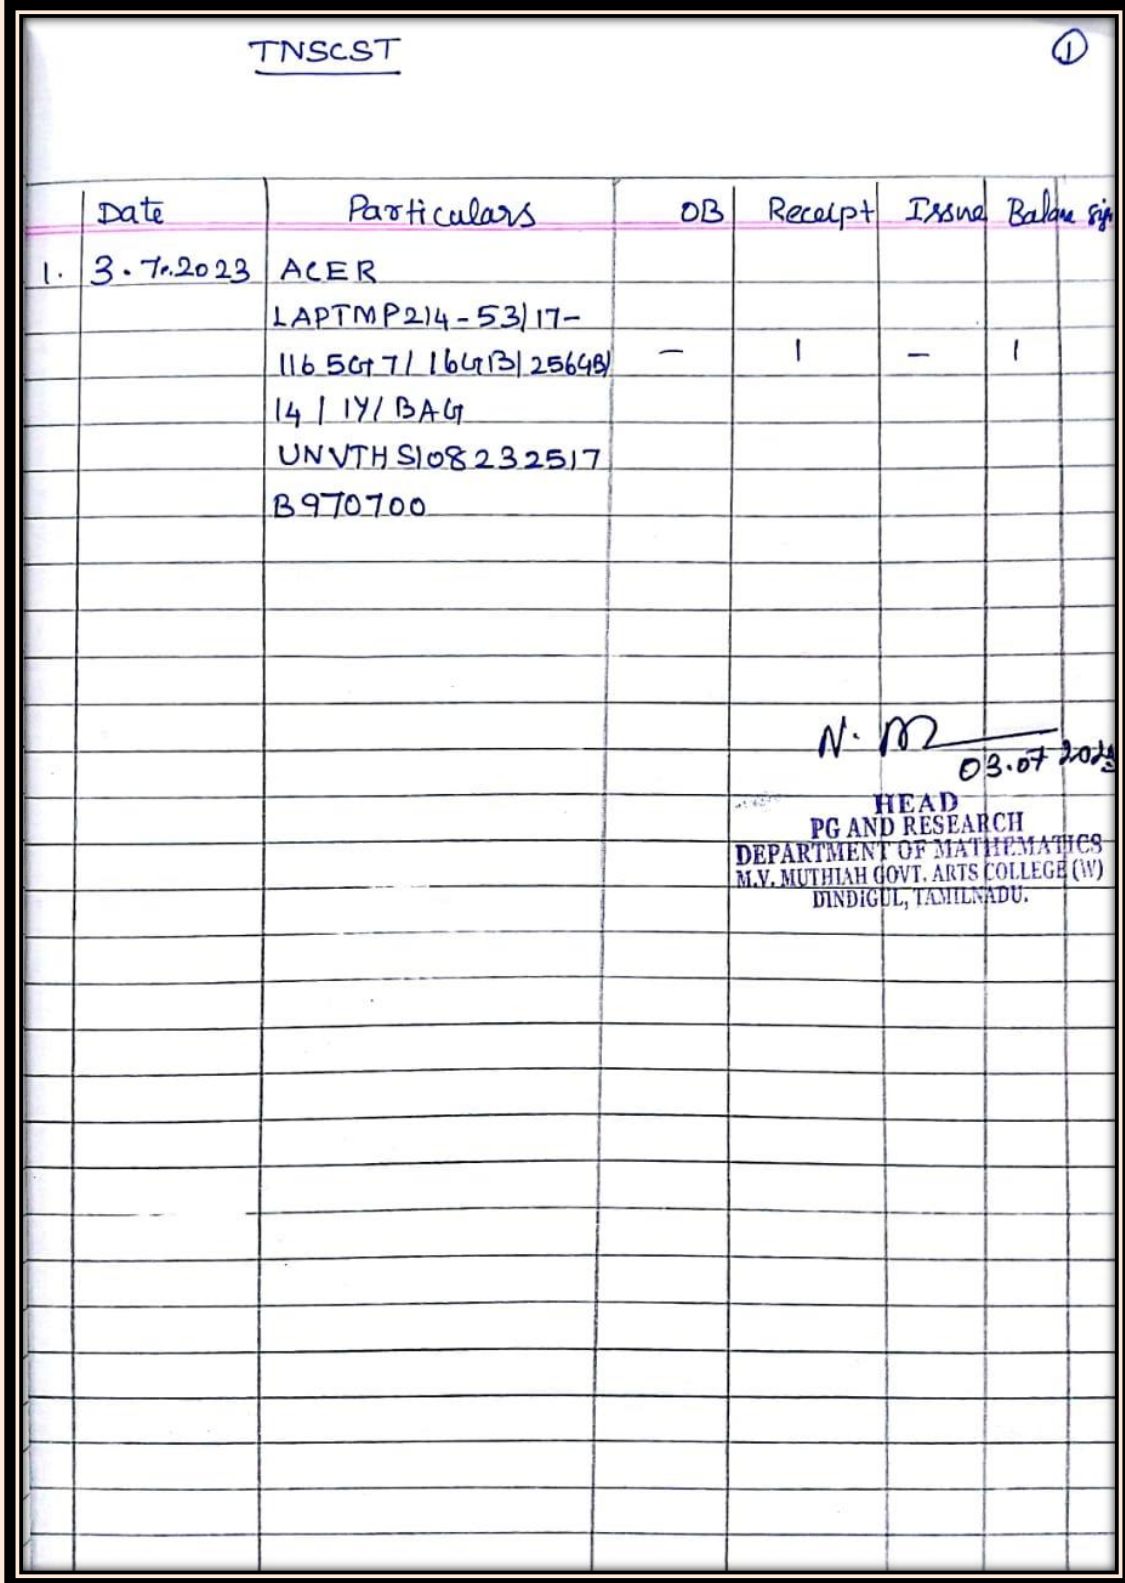 TNSCST
1
Date Particulars OB Receipt Issue Balane sign
1. 3.7.2023 ACER
LAPTMP214-53/17-
1165G7/16GB/256GB/ - 1 - 1
14/1Y/BAG
UNVTHSI08232517
B970700
N. M
03.07 2023
HEAD
PG AND RESEARCH
DEPARTMENT OF MATHEMATICS
M.V. MUTHIAH GOVT. ARTS COLLEGE (W)
DINDIGUL, TAMILNADU.